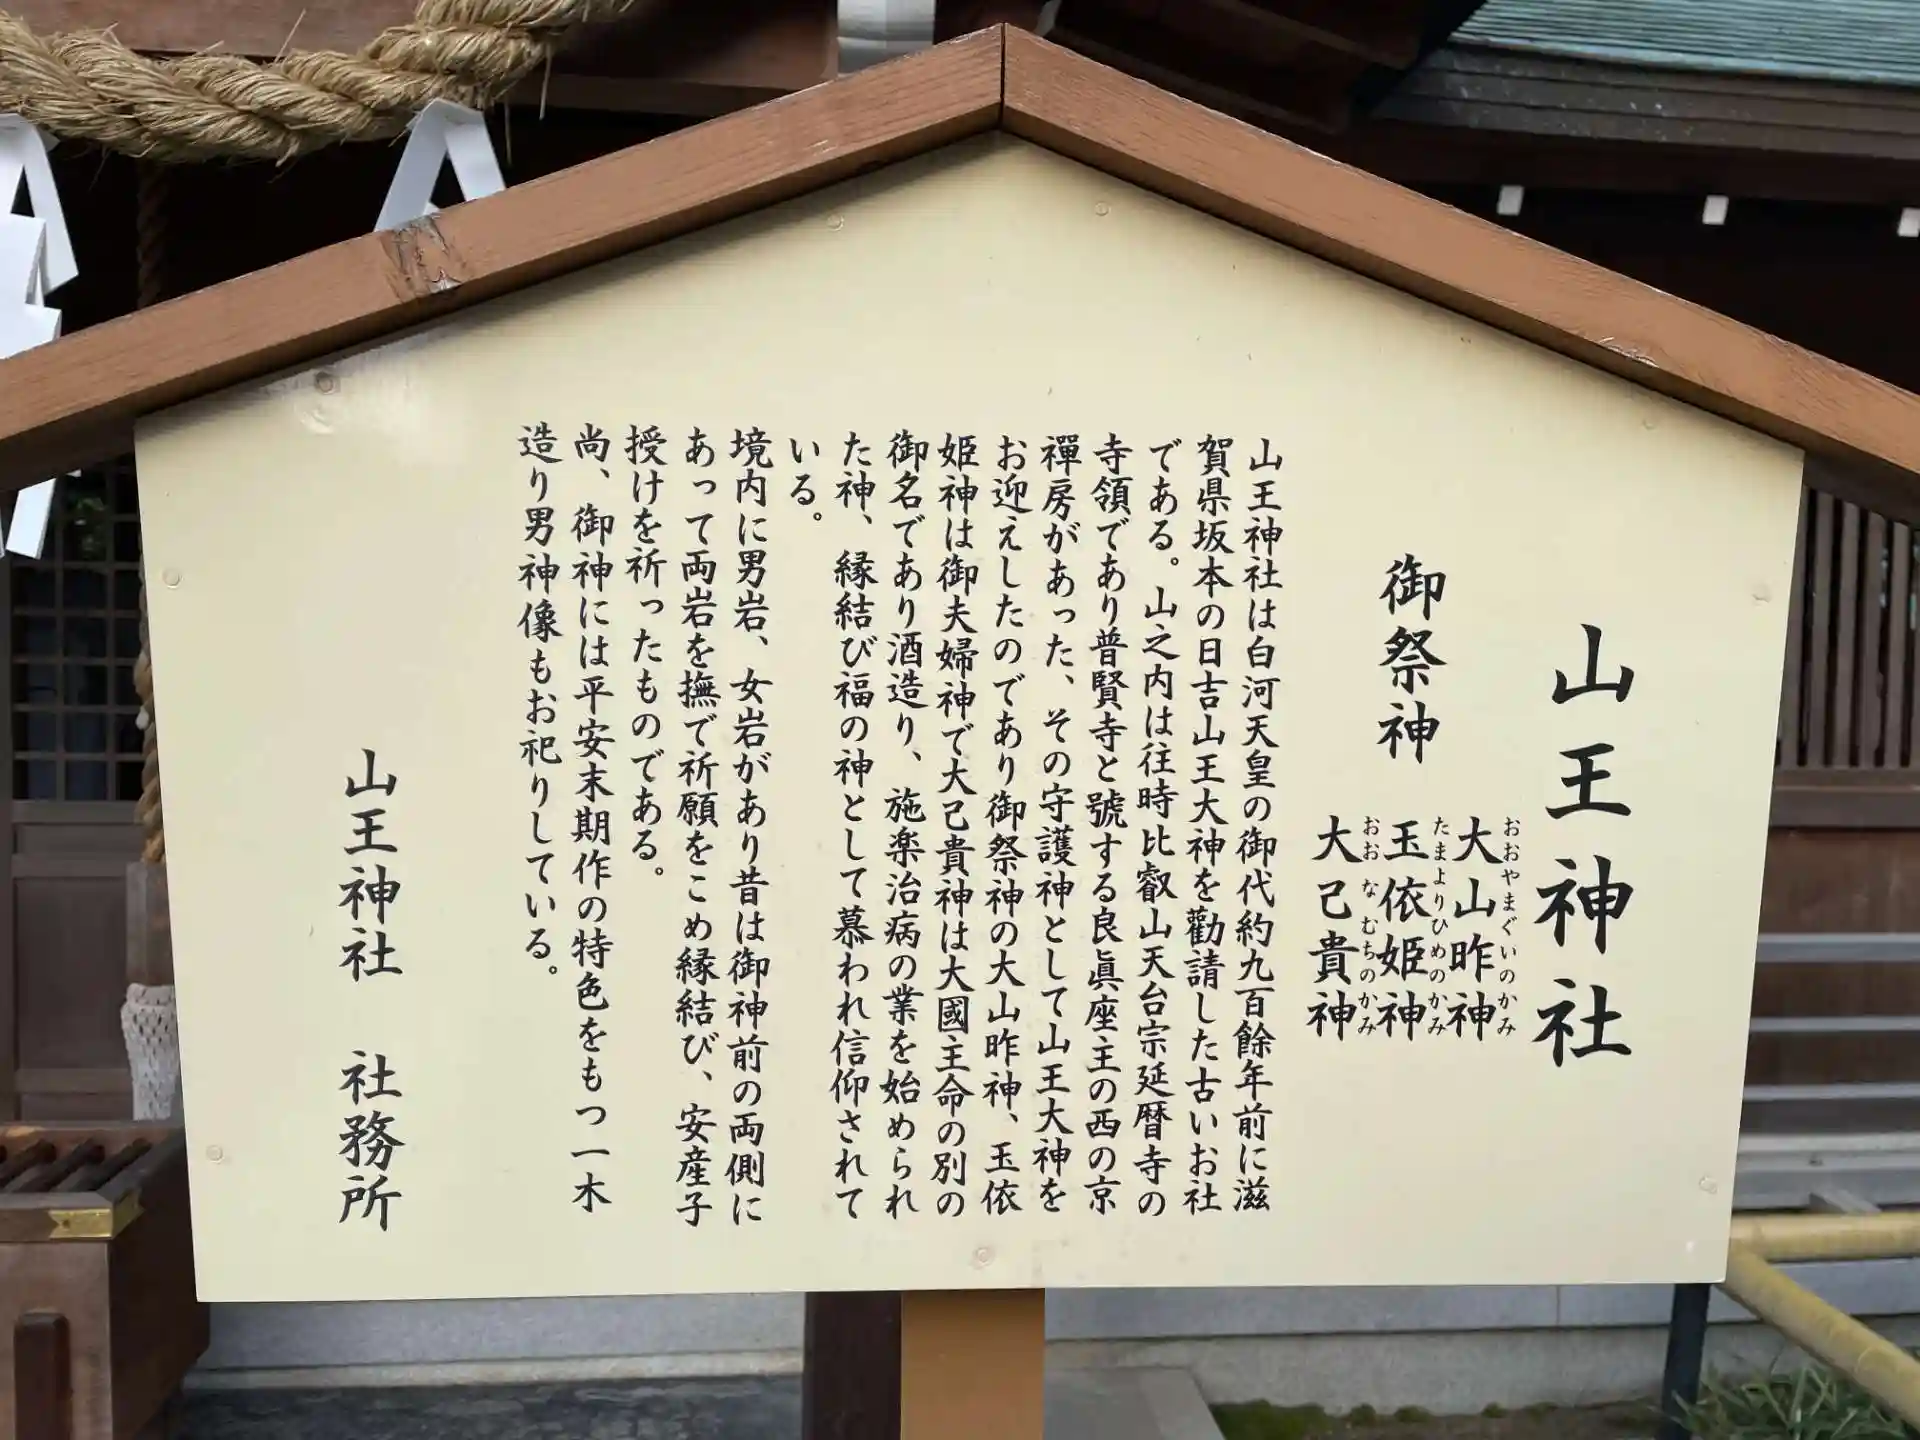 山王神社
御祭神
大山昨神
おおやまぐいのかみ
玉依姫神
たまよりひめのかみ
大己貴神
おおなむちのかみ
山王神社は白河天皇の御代約九百餘年前に滋
賀県坂本の日吉山王大神を勸請した古いお社
である。山之内は往時比叡山天台宗延暦寺の
寺領であり普賢寺と號する良眞座主の西の京
禪房があった、その守護神として山王大神を
お迎えしたのであり御祭神の大山昨神、玉依
姫神は御夫婦神で大己貴神は大國主命の別の
御名であり酒造り、施楽治病の業を始められ
た神、縁結び福の神として慕われ信仰されて
いる。
境内に男岩、女岩があり昔は御神前の両側に
あって両岩を撫で祈願をこめ縁結び、安産子
授けを祈ったものである。
尚、御神には平安末期作の特色をもつ一木
造り男神像もお祀りしている。
山王神社 社務所